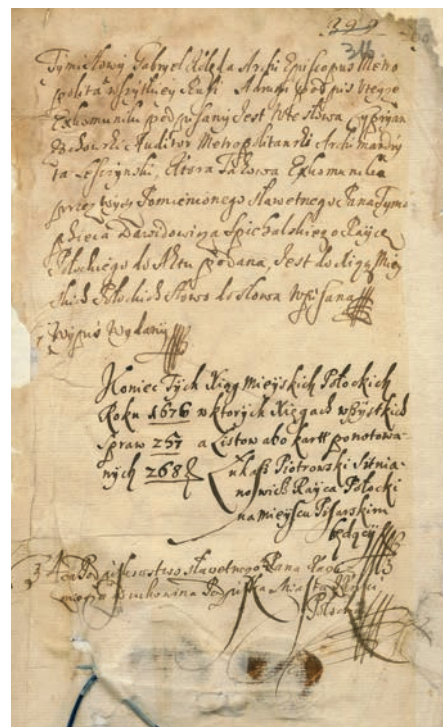 299
316
Tymi słowy Gabryel Kolęda Archi Episcopus Metro
polita wszytkiey Rusi A drugi podpis teyże
Exkomuniki podpisany Jest w te słowa Cypryan
Auditor Metropolitanski Archimandry
ta Leszczynski, Ktora Takowa Exkomunika
przez wyż Pomienionego Sławetnego Pana Tymo
Dawidowicza Spichalskiego Rayce
Połockiego do Aktu podana, Jest do Xiąg Miey
skich Połockich Słowo do słowa Wpisana
Wypis Wydany
Koniec Tych Xiąg Mieyskich Połockich
Roku 1676 w ktorych Xięgach wszystkich
Spraw 257 a Listow abo kartt ponotowa
nych 268
Łukasz Piotrowski Sitnia
nowicz Rayca Połocki
na mieyscu Pisarskim
będący
sławetnego Pana
Miasta